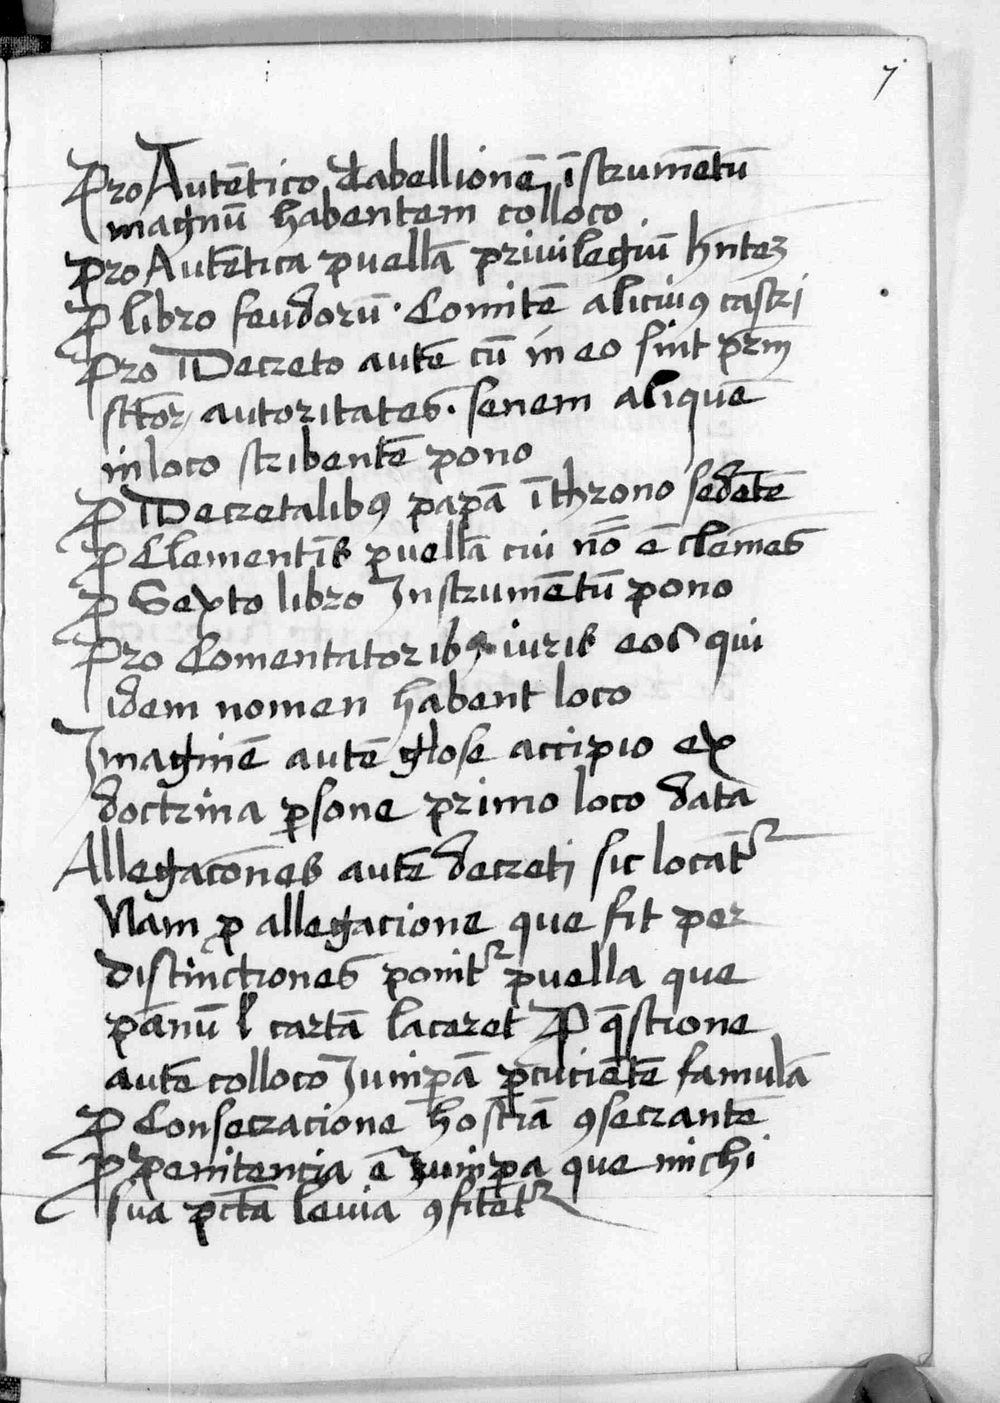 7
Pro Autētico tabellionē īstrumētū
magnū habentem colloco
pro Autētica puellā priuilegiū hn̄tez
Ꝓ libro feudorū · Comitē alicuiꝰ castri
Pro Decreto autē cū in eo sint pr̄m
sctōrꝝ autoritates · senem aliquē
in loco scribentē pono
Ꝓ Decretalibꝰ papā ī throno sedētē
Ꝓ Clementīs puellā cui nō̄ ē clemēs
Ꝓ Sexto libro Instrumētū pono
Pro Comentatoribꝰ iuris eos qui
idem nomen habent loco
Imaginē autē glose accipio ex
doctrina ꝑsone primo loco data
Allegacōnes autē decreti sic locātr
Nam ꝓ allegacione que fit per
distinctiones ponitr puella que
pānū ł cartā laceret Ꝓ q̄stione
autē colloco Iuniꝑā ꝑcucientē famulā
Ꝓ Consecracione hostiā ꝯsecrantē
Ꝓ penitencia ē Iuniꝑa que michi
sua pctā leuia ꝯfitetr